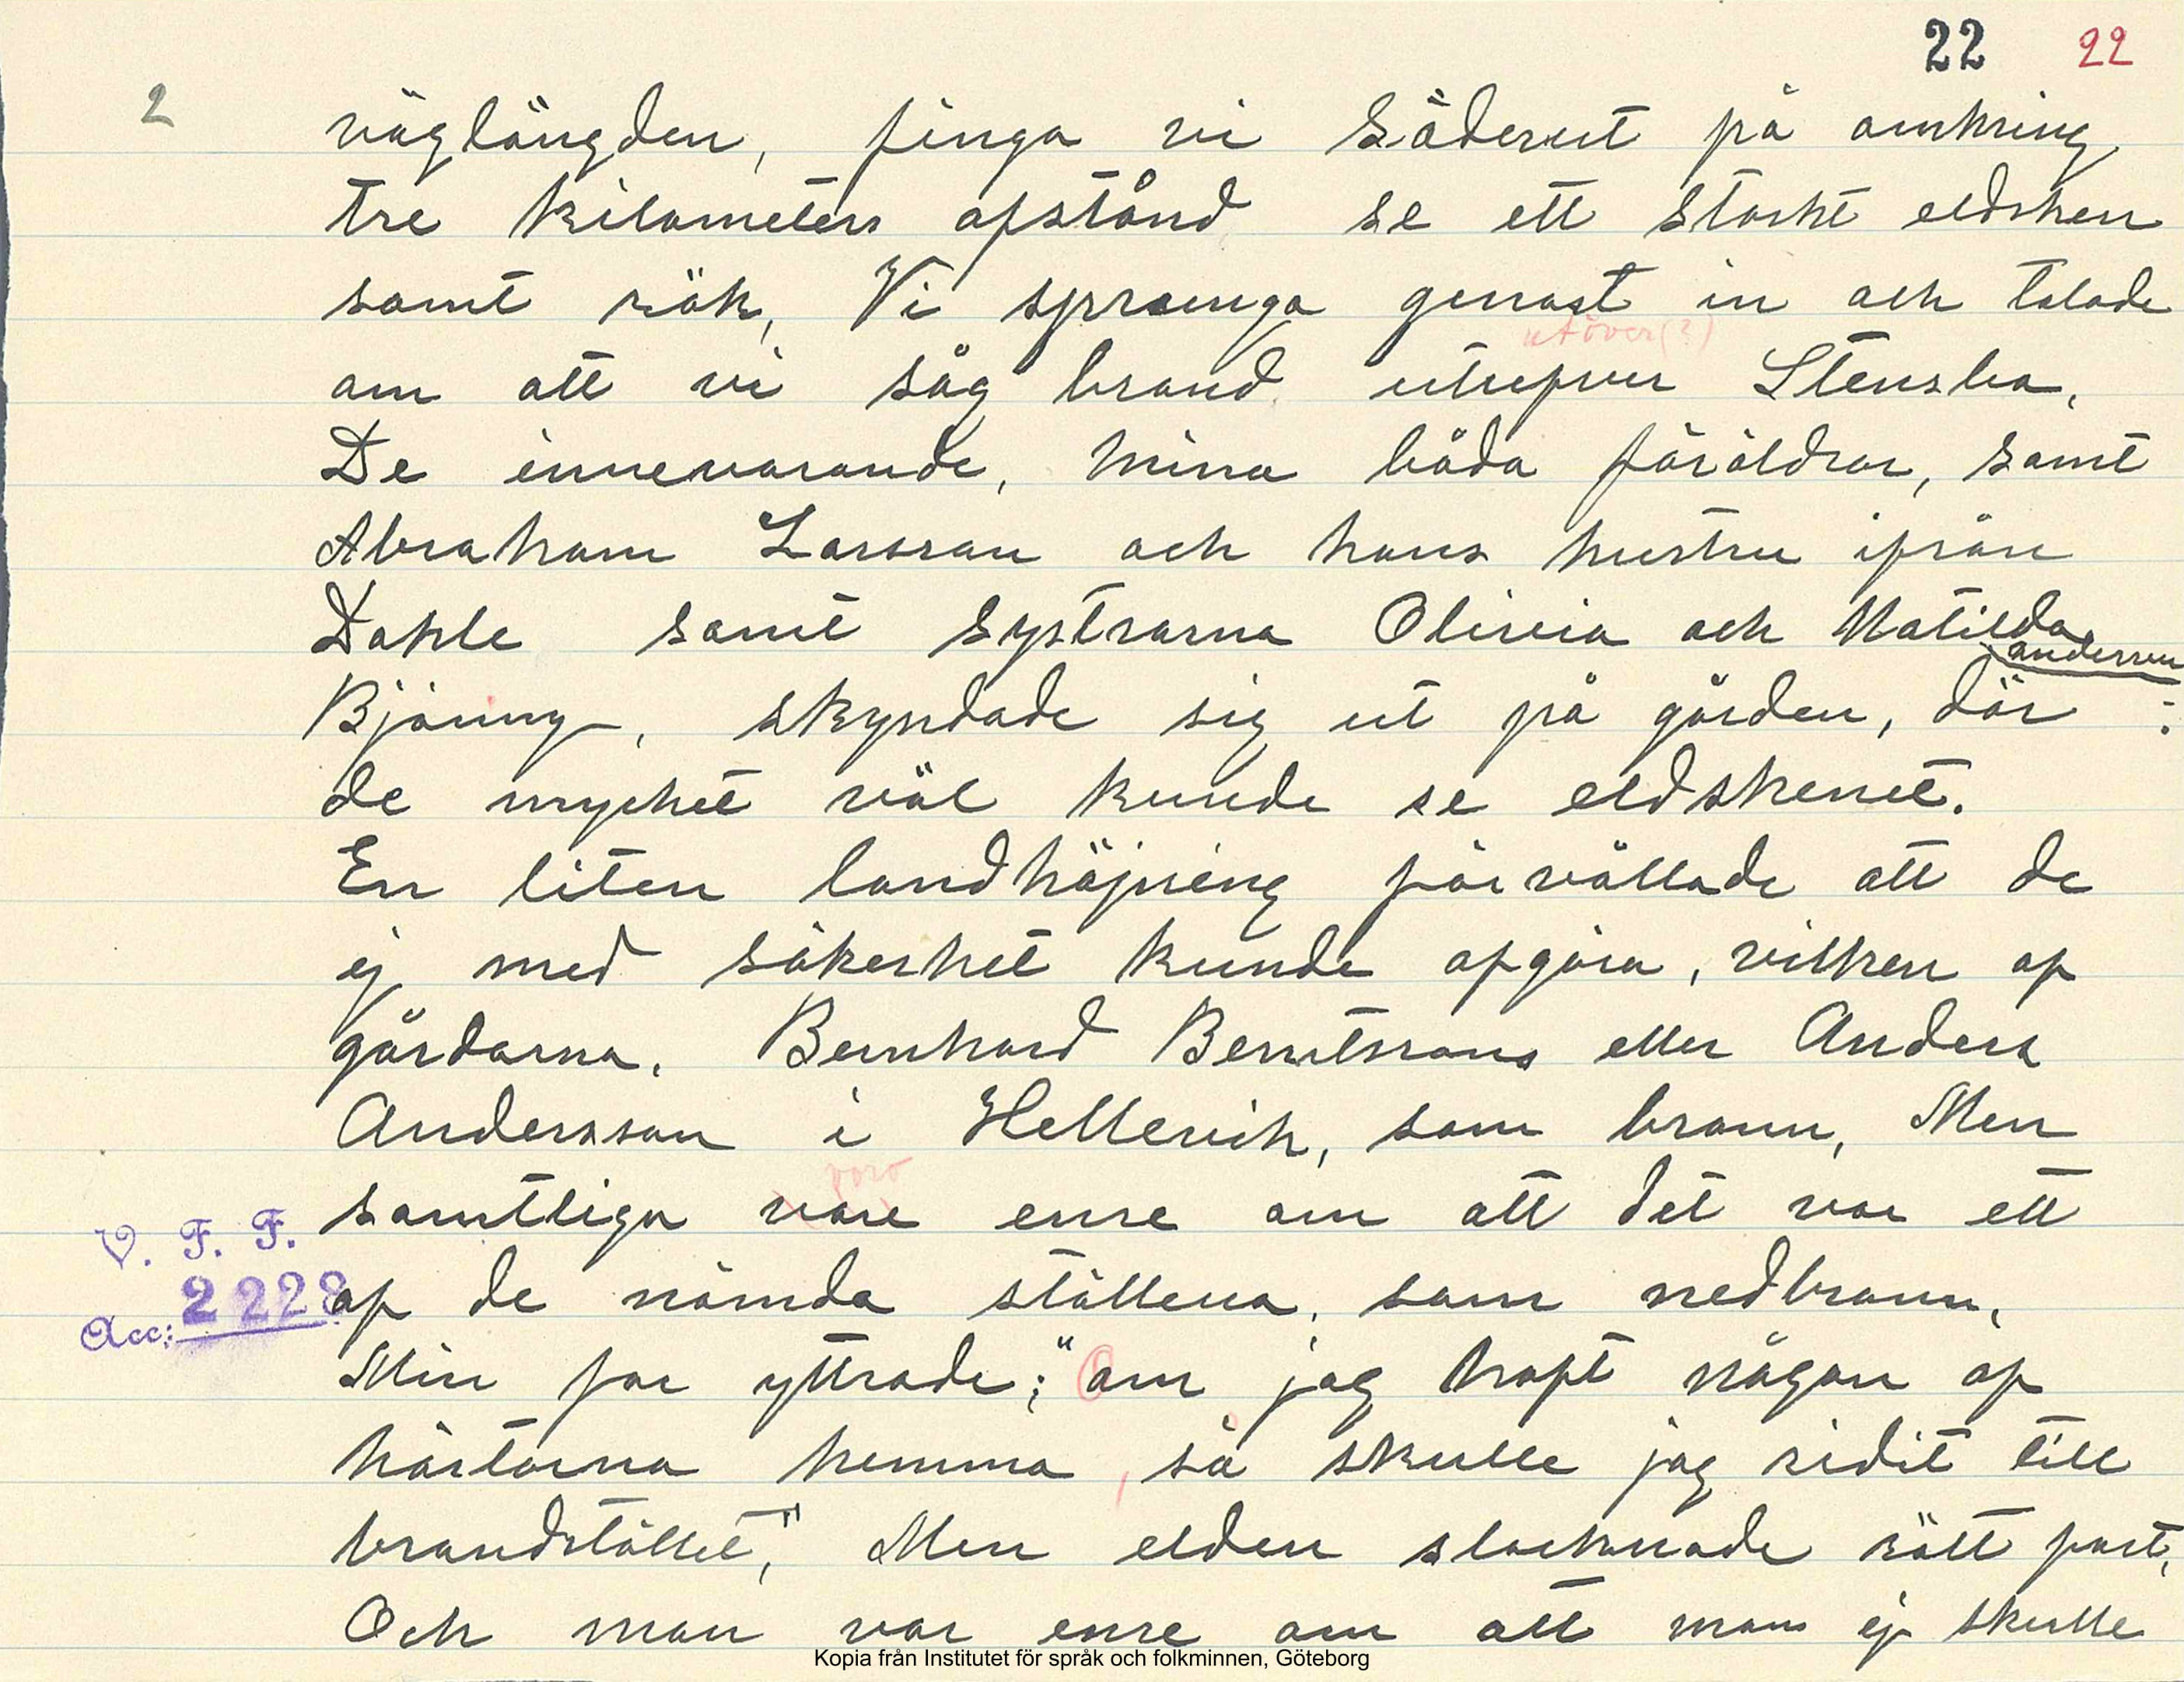 22 22
2
väglängden, finga vi söderut på omkring
tre kilometers afstånd se ett starkt eldsken
samt rök, Vi sprungo genast in och talade
utöver(?)
om att vi såg brand utefver Stensbo,
De innevarande, mina båda föräldrar, samt
Abraham Larsson och hans hustru ifrån
Dahle samt systrarna Olivia och Matilda
anderson
Björning, skyndade sig ut på gården, där :
de mycket väl kunde se eldskenet.
En liten landhöjning förvållade att de
ej med säkerhet kunde afgöra, vilken af
gårdarna, Bernhard Berntssons eller Anders
Andersson i Hellevik, som brann, Men
voro
samtliga vore ense om att det var ett
V. F. F.
Acc: 2228
af de nämda ställena, som nedbrann,
Min far yttrade; "om jag haft någon af
hästarna hemma, så skulle jag ridit till
brandstället", Men elden slocknade rätt fort,
Och man var ense om att man ej skulle
Kopia från Institutet för språk och folkminnen, Göteborg